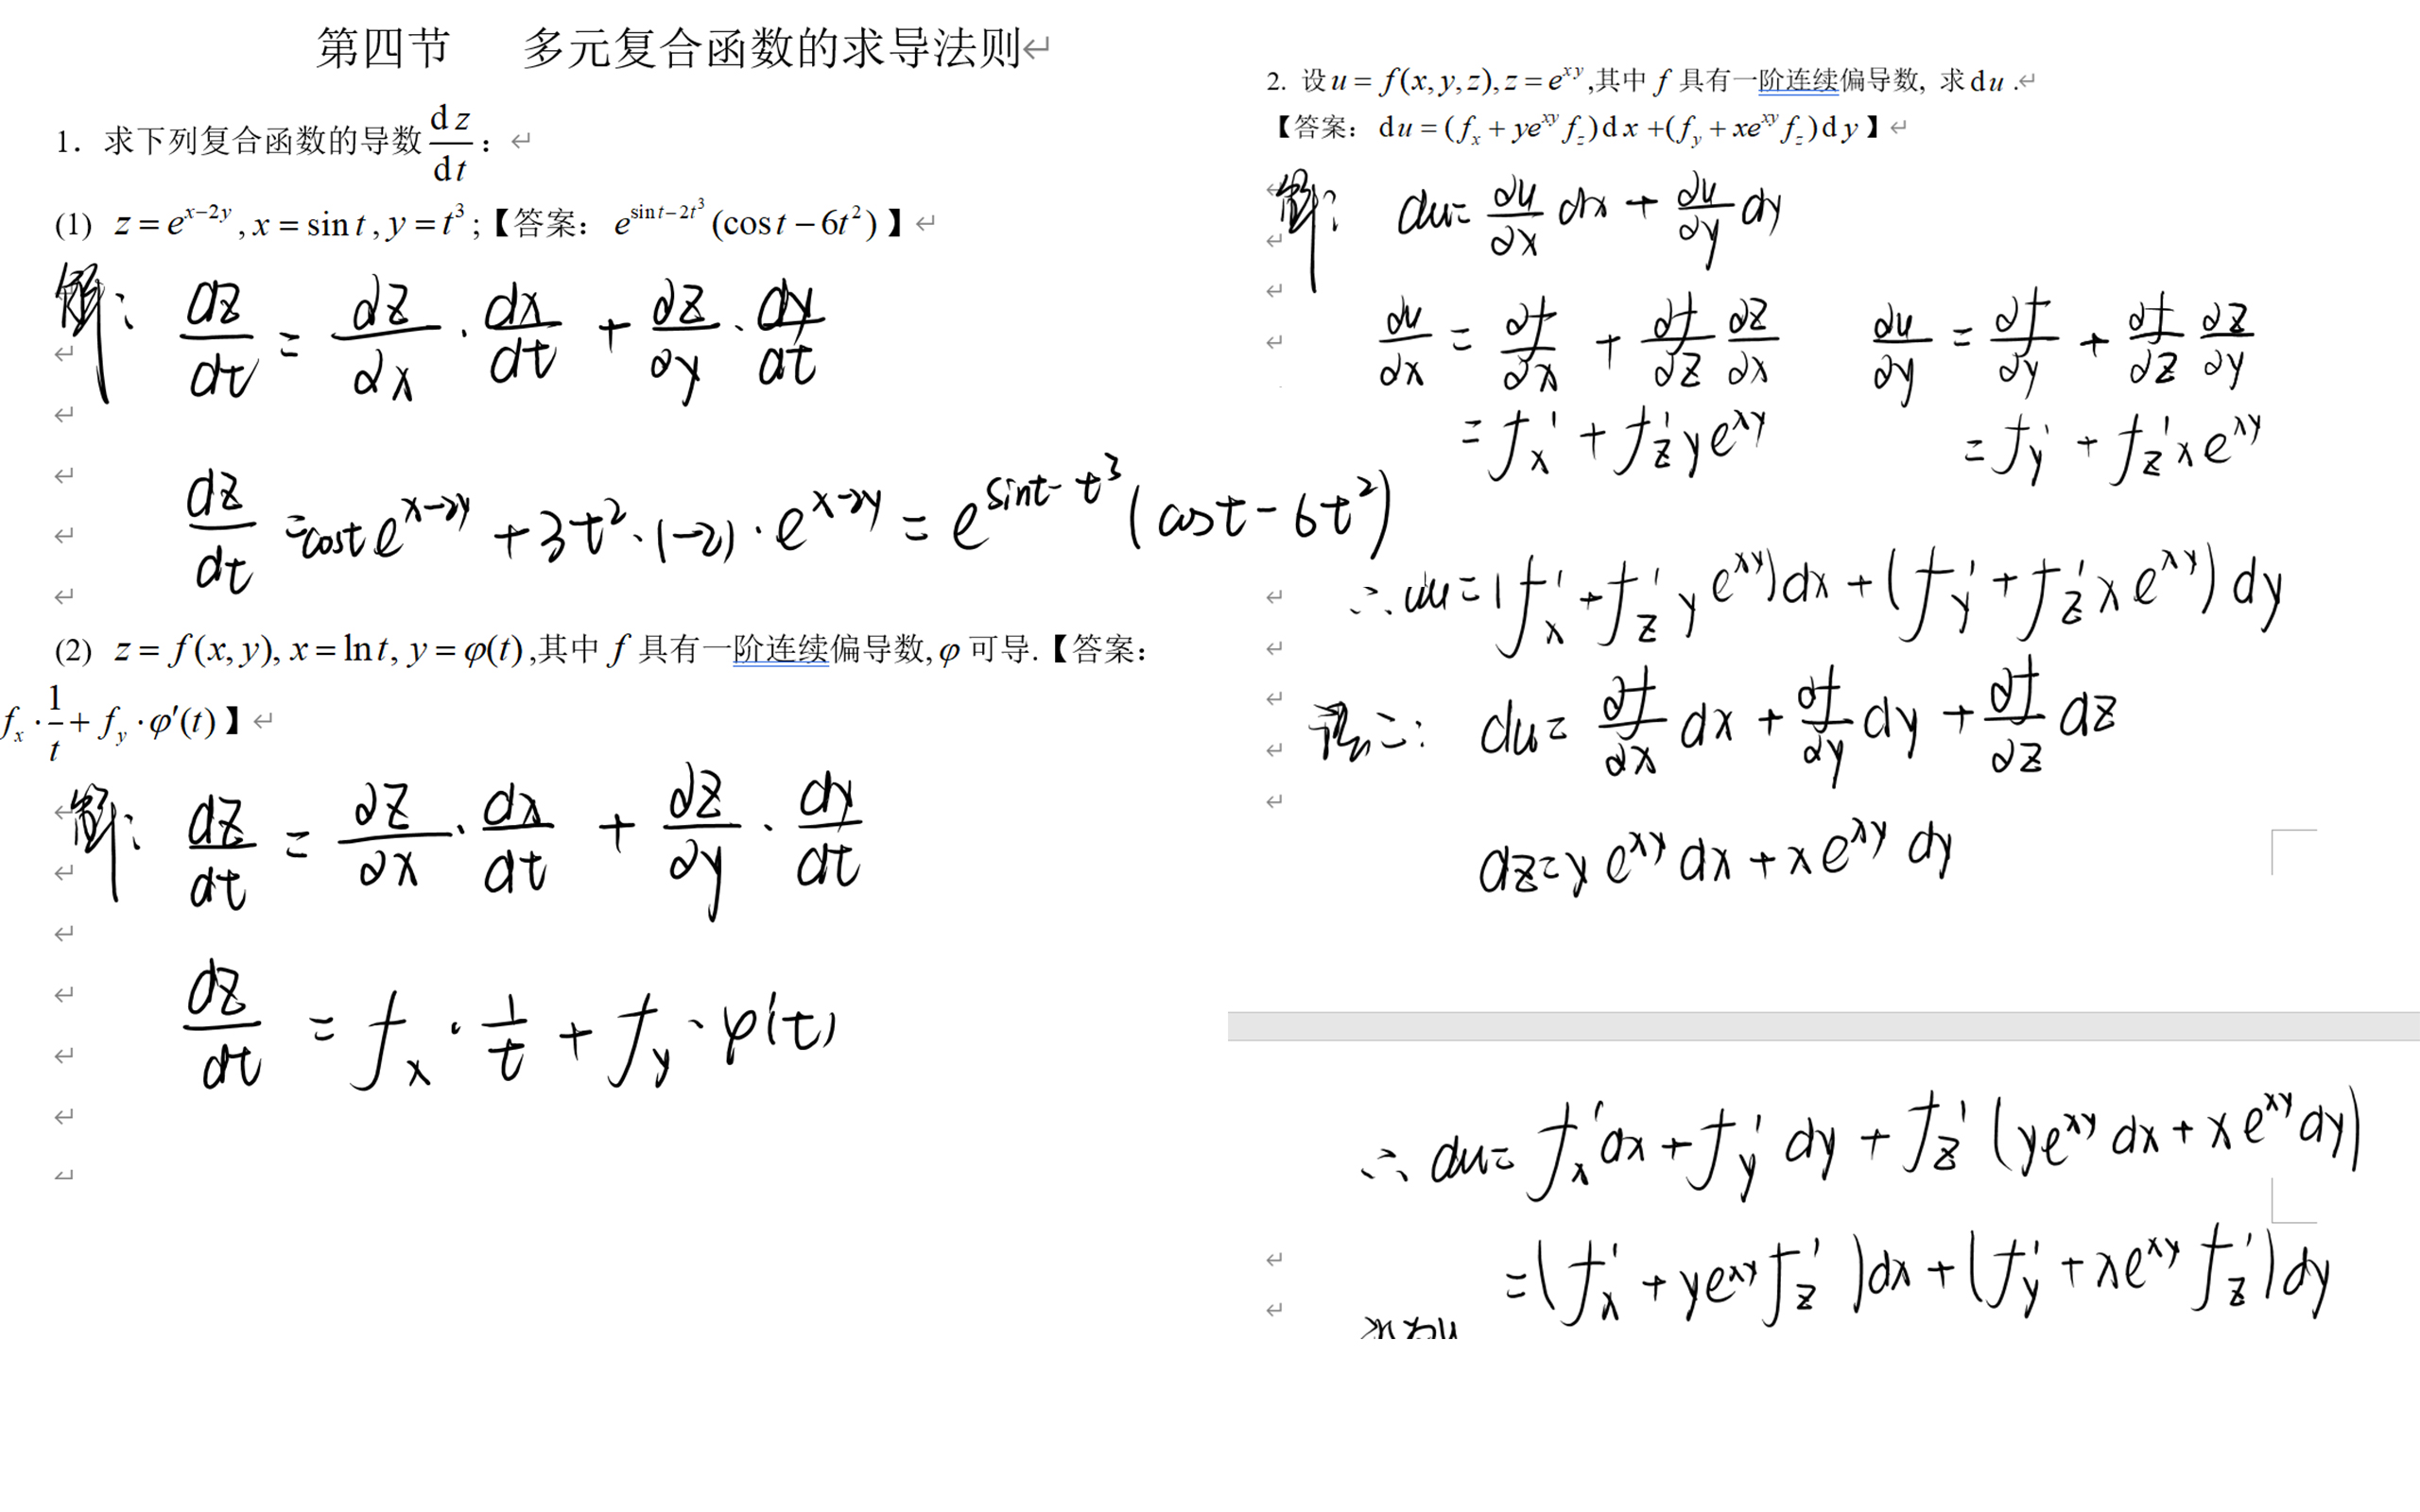 第四节 多元复合函数的求导法则
1. 求下列复合函数的导数 dz/dt：
(1) z = e^{x-2y}, x = sin t, y = t^3;【答案： e^{sin t-2t^3}(cos t - 6t^2)】
解： dz/dt = ∂z/∂x · dx/dt + ∂z/∂y · dy/dt
dz/dt = cost e^{x-2y} + 3t^2 · (-2) · e^{x-2y} = e^{sint-t^3}(cost - 6t^2)
(2) z = f(x, y), x = ln t, y = φ(t),其中 f 具有一阶连续偏导数, φ 可导.【答案：
f_x · 1/t + f_y · φ′(t)】
解： dz/dt = ∂z/∂x · dx/dt + ∂z/∂y · dy/dt
dz/dt = f_x · 1/t + f_y · φ′(t)
2. 设 u = f(x, y, z), z = e^{xy},其中 f 具有一阶连续偏导数, 求 du .
【答案： du = (f_x + ye^{xy} f_z)dx +(f_y + xe^{xy} f_z)dy】
解： du = ∂u/∂x dx + ∂u/∂y dy
∂u/∂x = ∂f/∂x + ∂f/∂z ∂z/∂x ∂u/∂y = ∂f/∂y + ∂f/∂z ∂z/∂y
= f_x′ + f_z′ ye^{xy} = f_y′ + f_z′ xe^{xy}
∴ du = (f_x′ + f_z′ y e^{xy})dx + (f_y′ + f_z′ x e^{xy})dy
法二： du = ∂f/∂x dx + ∂f/∂y dy + ∂f/∂z dz
dz = y e^{xy} dx + x e^{xy} dy
∴ du = f_x′ dx + f_y′ dy + f_z′ (ye^{xy} dx + x e^{xy} dy)
= (f_x′ + ye^{xy} f_z′)dx + (f_y′ + xe^{xy} f_z′)dy